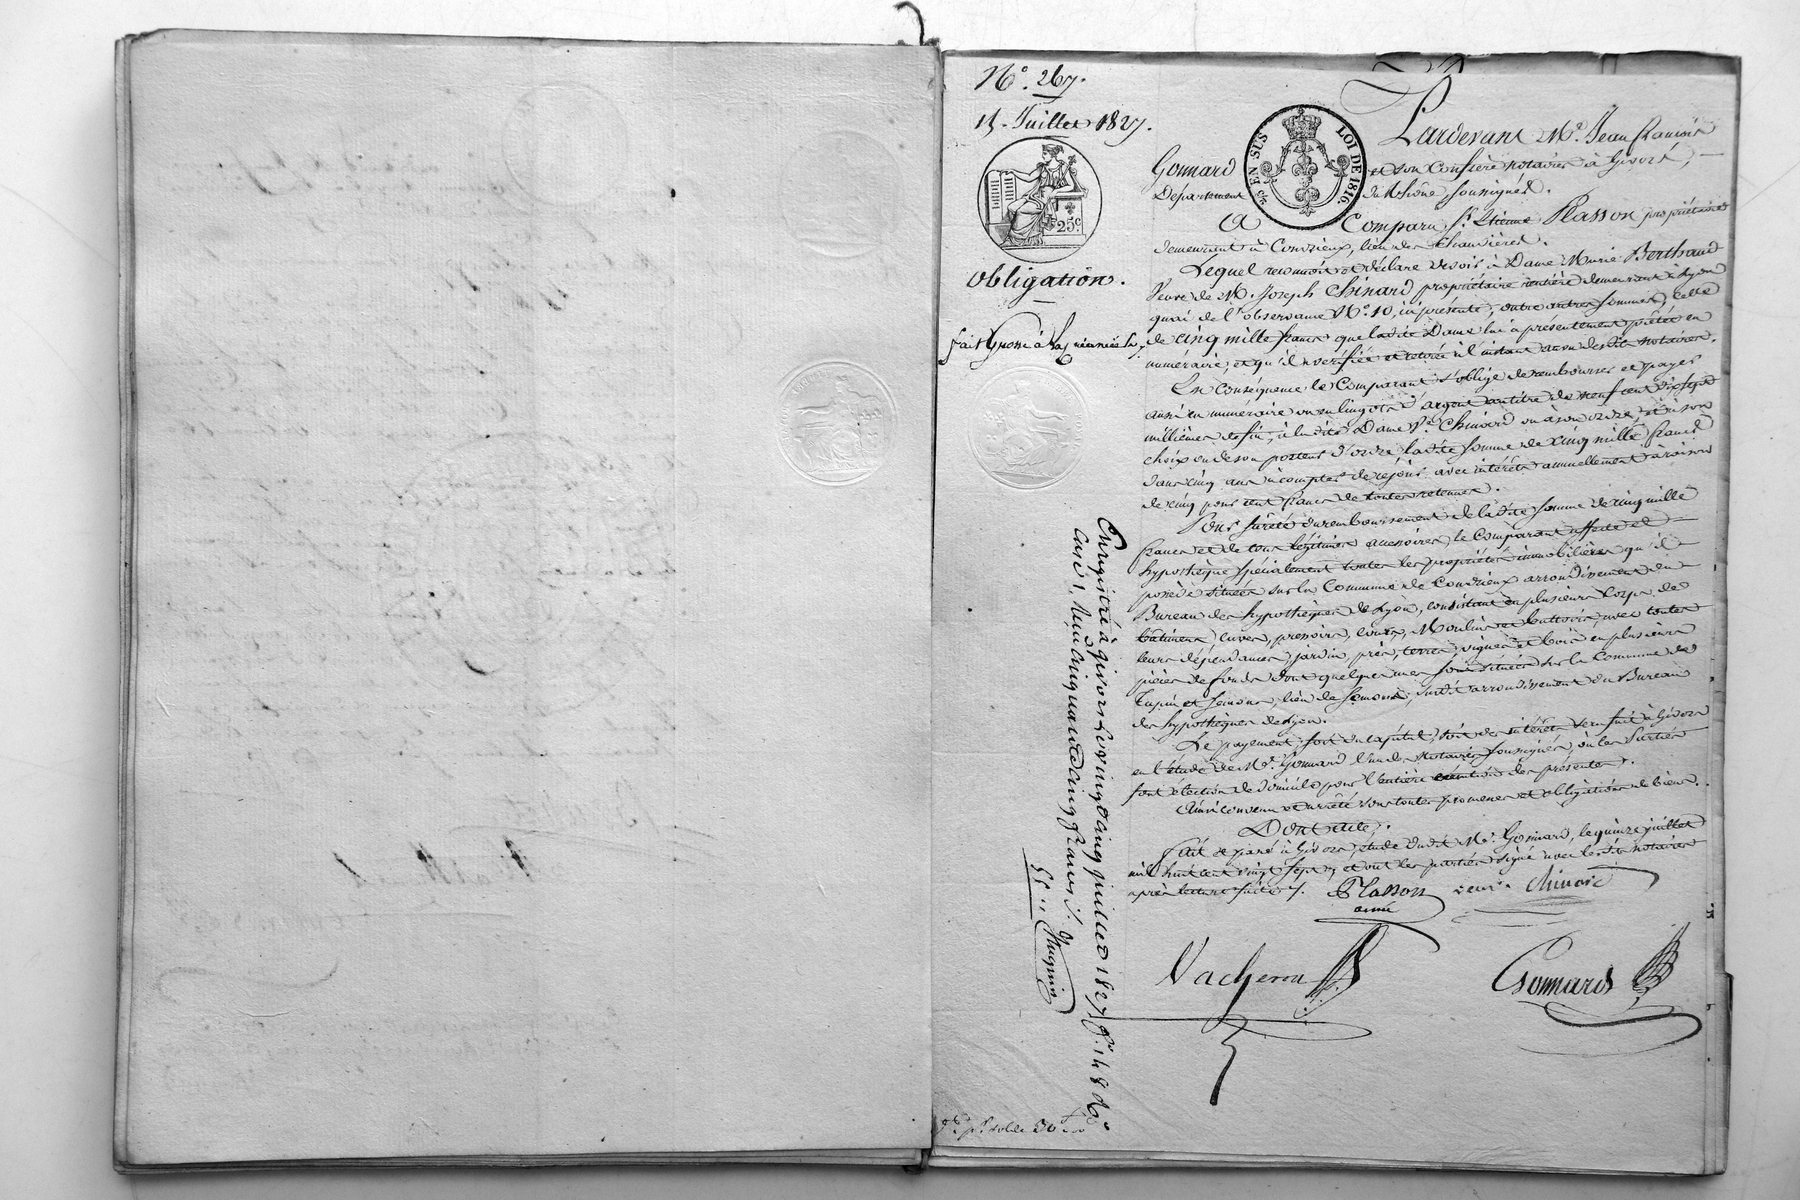 N.° 267.
15. Juillet 1827.
25c
Obligation.
⅕ EN SUS
LOI DE 1816.
Pardevant Me. Jean françois
Gonnard et son Confrère notaires à Givors,
Département du Rhône, soussignés.
A Comparu sr. Etienne Plasson propriétaire
demeurant à Condrieux, lieu des Chauvières.
Lequel reconnoit et déclare devoir à Dame Marie Berthaud
Veuve de M. Joseph Chinard propriétaire rentière demeurant à Lyon
quai de l'observance No. 10, ici présente, outre autres sommes, celle
de cinq mille francs que ladite Dame lui a présentement prêtée en
numéraire, et qu'il a vérifiée et retirée à l'instant au vu desdits notaires.
En conséquence le Comparant s'oblige de rembourser et payer
aussi en numéraire ou en lingots d'argent au titre de neuf cent
millièmes de fin, à ladite Dame Ve. Chinard ou à son ordre, et à son
choix ou de son porteur d'ordre ladite somme de cinq mille francs
dans cinq ans à compter de ce jour avec intérêts annuellement à raison
de cinq pour cent francs de toutes retenues.
Pour sûreté du remboursement de ladite somme de cinq mille
francs et de tous légitimes accessoires, le Comparant affecte et
hypothèque spécialement toutes les propriétés immobilières qu'il
possède situées sur la Commune de Condrieux arrondissement du
Bureau des hypothèques de Lyon, consistant en plusieurs Corps de
bâtiment, cuves, pressoirs, cours, Moulins et battoirs, avec toutes
leurs dépendances, jardin, près, terres, vignes et bois en plusieurs
pièces de fonds dont quelques unes sont situées sur la Commune de
Tupin et Semons, lieu de Semons, susdit arrondissement du Bureau
des hypothèques de Lyon.
Le payement, soit du capital, soit des intérêts sera fait à Givors
en l'étude de Me. Gonnard l'un des Notaires soussignés, où les Parties
font élection de domicile pour l'entière exécution des présentes.
Ainsi convenu et arrêté sous toutes promesses et obligations de biens.
Dont acte,
fait et passé à Givors, étude dudit Me. Gonnard, le quinze juillet
mil huit cent vingt sept, et ont les parties signé avec lesdits notaires
après lecture faite.
Plasson
ainé
veuve Chinard
Vacheron
Gonnard
Enregistré à givors le vingt cinq juillet 1827 fo. 148 Vo.
Case 1. Reçu Cinquante Cinq francs